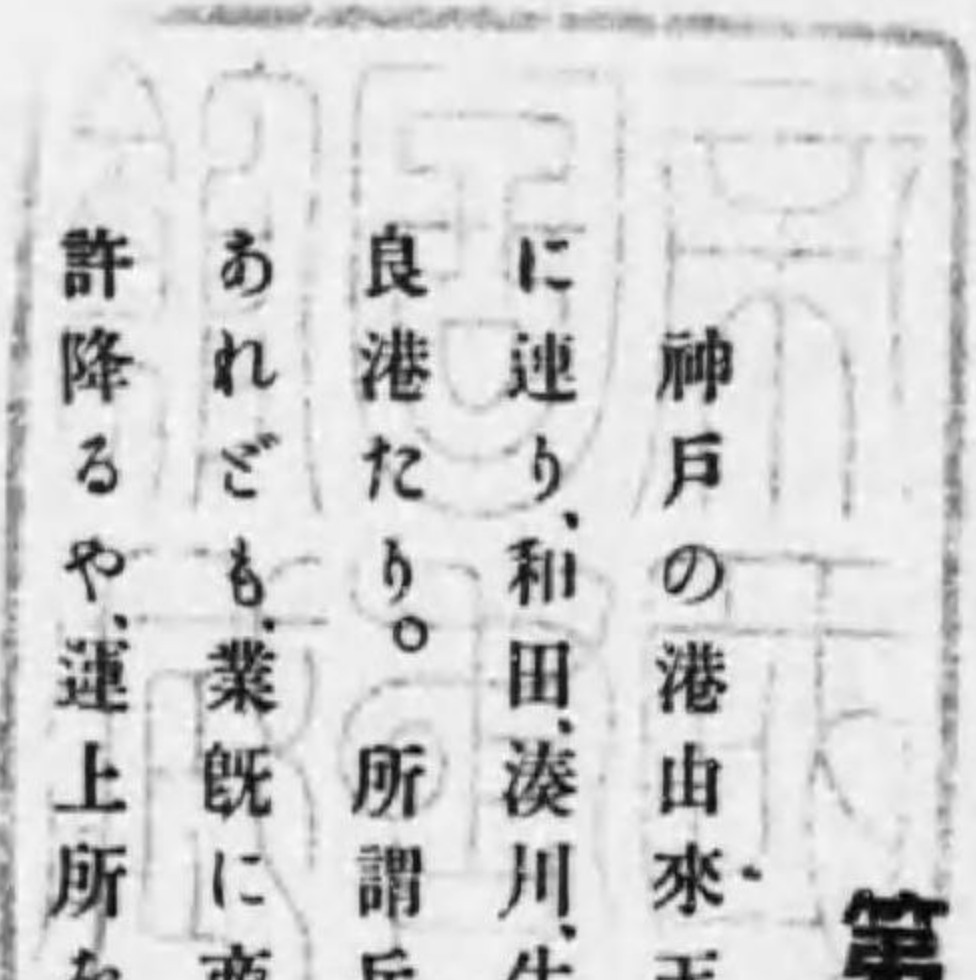 第
神戸の港由來
に連り、和田、湊川、
良港たり。所謂
あれども、業既に
許降るや、運上所